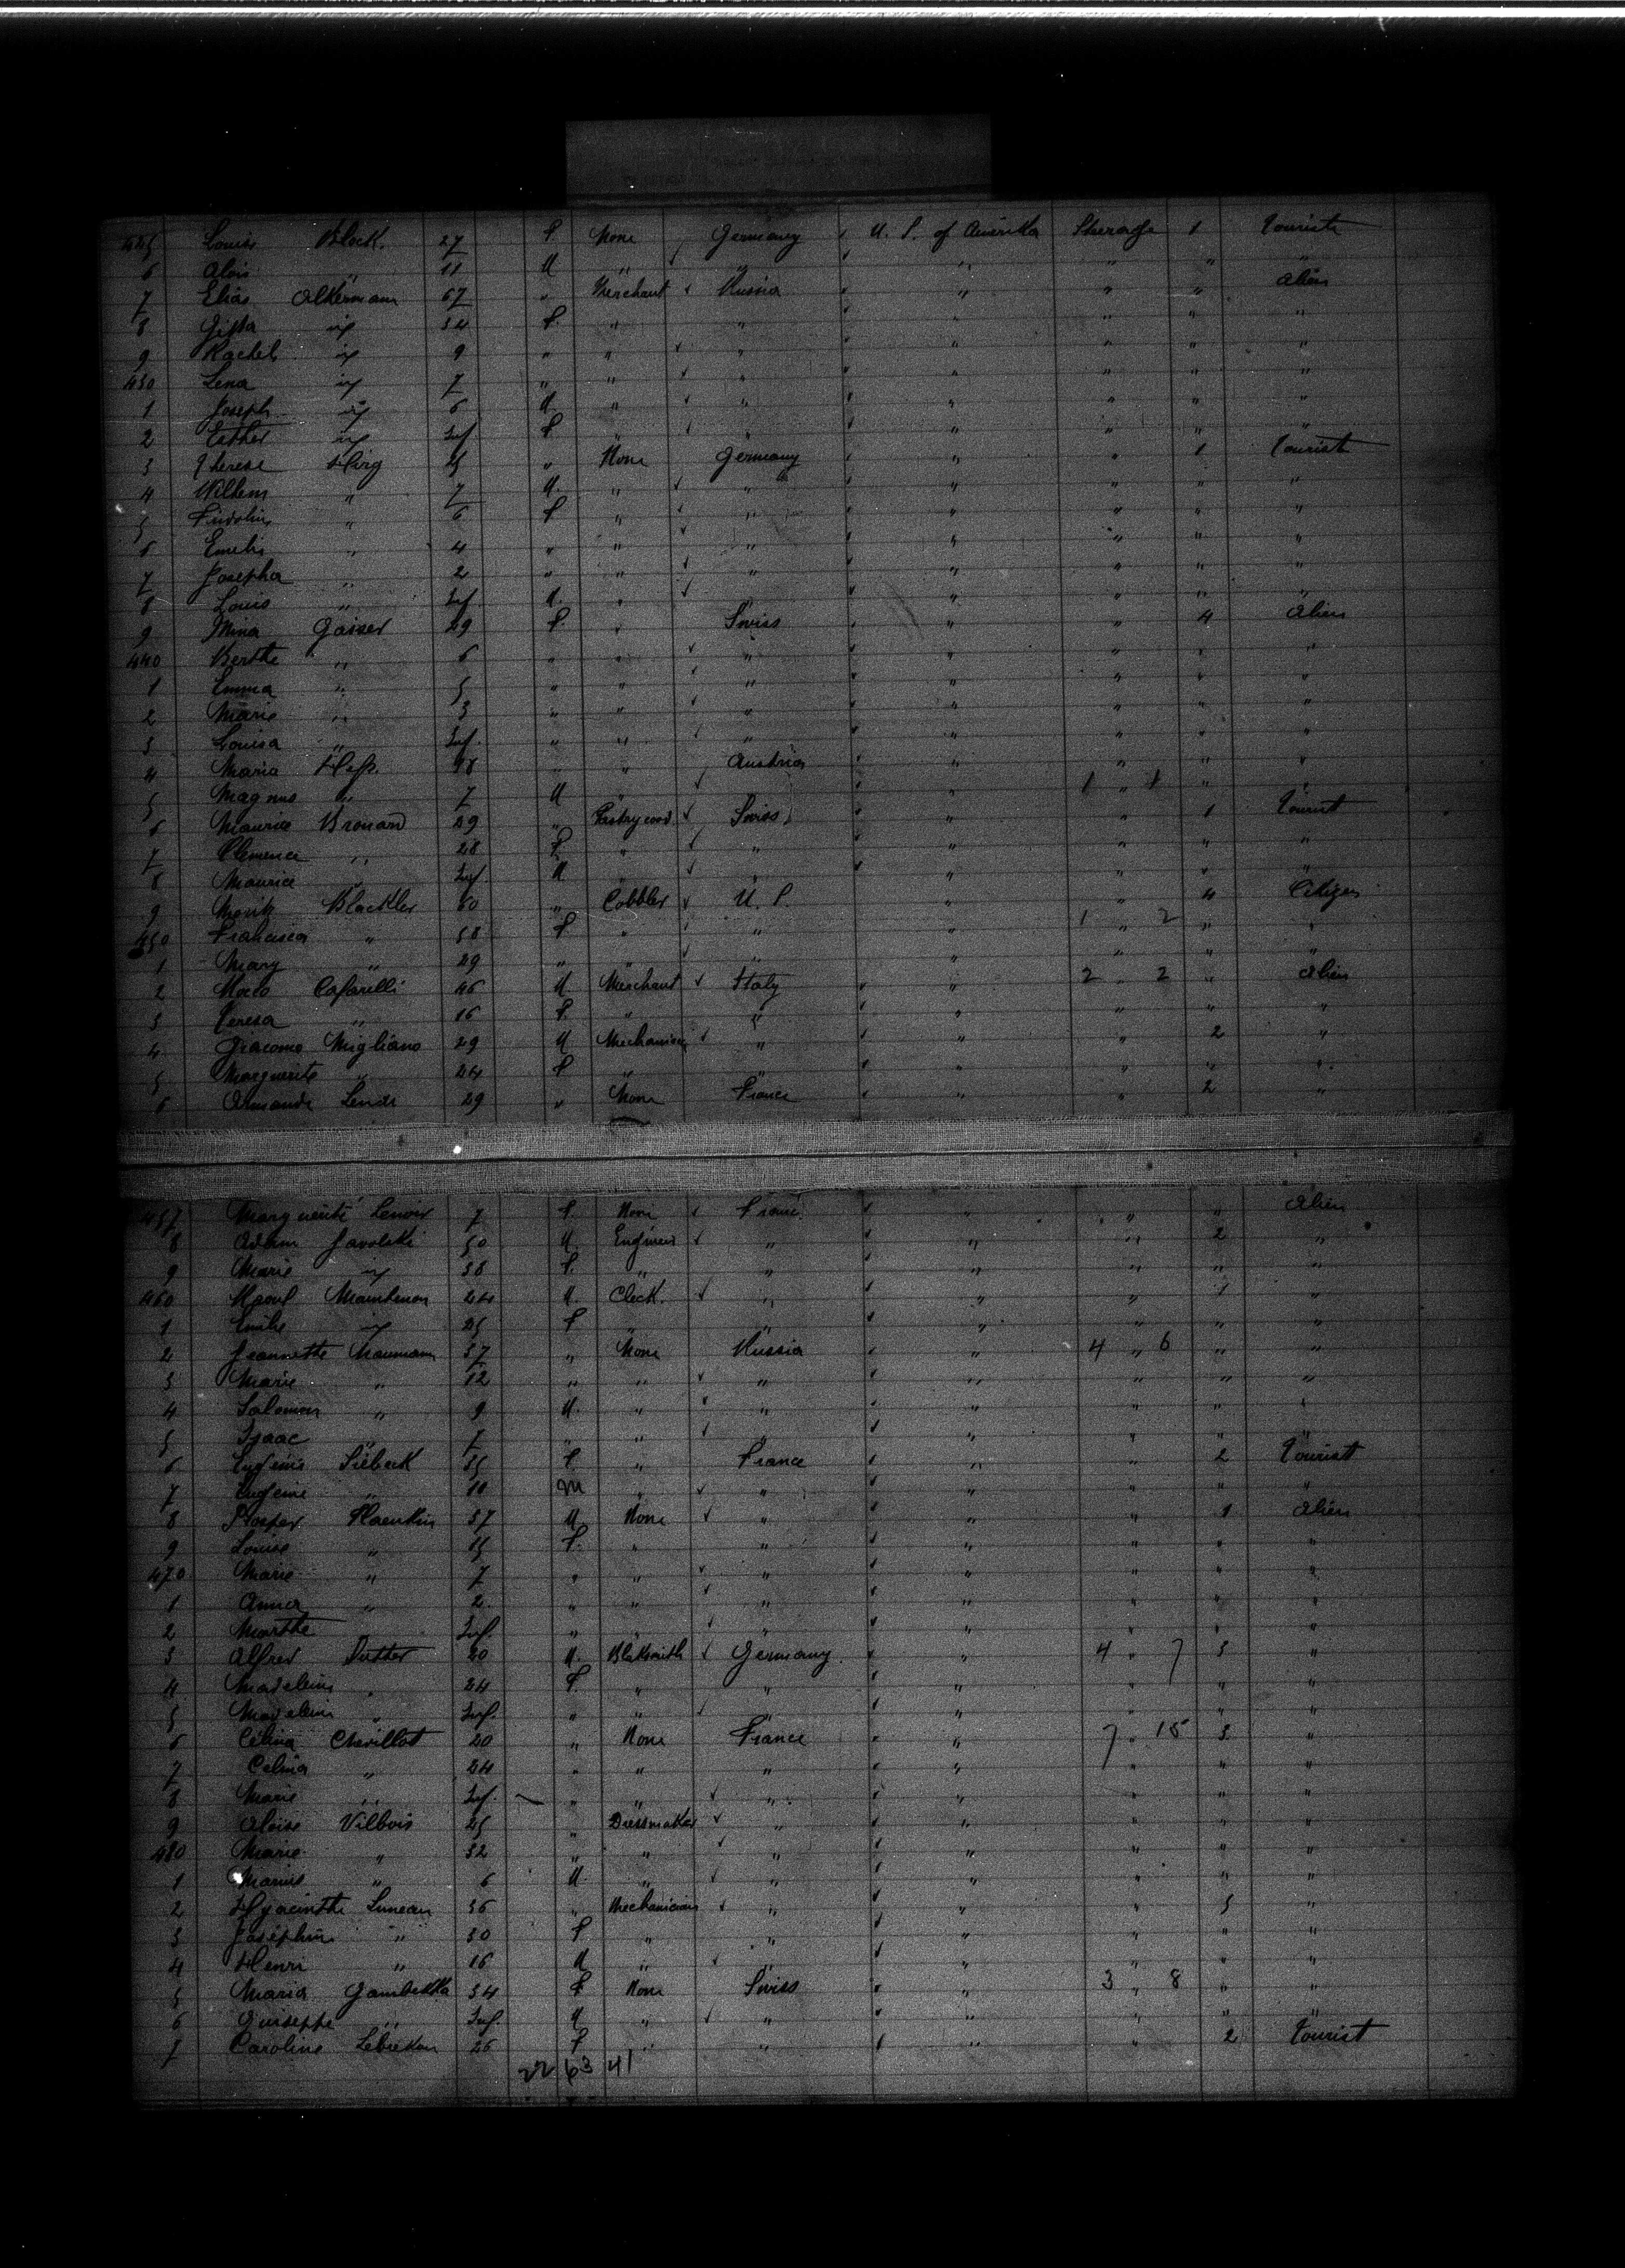 425 Louise Block. 27 F None Germany U. S. of Amerika Steerage 1 Tourist
6 Alois " 11 M " " " " " "
7 Elias Alkerman 67 " Merchant Russia " " " Alien
8 Gissa " 34 F. " " " " " "
9 Rachel " 9 " " " " " " "
430 Lena " 7 " " " " " " "
1 Joseph " 6 M " " " " " "
2 Esther " Inf. F " " " " " "
3 Therese Hirg " None Germany " " 1 Tourist
4 Wilhem " 7 M. " " " " " "
5 " 6 F " " " " " "
6 Emelie " 4 " " " " " " "
7 Josepha " 2 " " " " " " "
8 Louis " Inf. M. " " " " " "
9 Mina Gaiser 29 F. " Swiss " " 4 Alien
440 Berthe " 6 " " " " " " "
1 Emma " 5 " " " " " " "
2 Marie " 3 " " " " " " "
3 Louisa " Inf. " " " " " " "
4 Maria " " Austria " " " "
5 Magnus " 7 M " " " 1 " 1 " "
6 Maurice Brouard 29 " Swiss " " 1 Tourist
7 Clemence " 28 F " " " " " "
8 Maurice " Inf. M " " " " " "
9 Moritz Blackler 60 " Cobbler U. S. " " 4 Citizen
450 Francisca " 58 F " " " 1 " 2 " "
1 Mary " 29 " " " " " " "
2 Cafarelli 46 M Merchant Italy " 2 " 2 " Alien
3 Teresa " 16 F. " " " " " "
4 Giacomo Migliano 29 M Mechanician " " " 2 "
5 Marguerite " 24 F " " " " " "
6 Armande Lenoir 29 " None France " " 2 "
457 Marguerite Lenoir 7 F. None France " " " Alien
8 Adam Javolski 50 M. Engineer " " " 2 "
9 Marie " 38 F. " " " " " "
460 Raoul Maintenon 24 M. Cleck. " " " 1 "
1 Emilie " 25 F " " " " " "
2 Jeannette Naumann 37 " None Russia " 4 " 6 " "
3 Marie " 12 " " " " " " "
4 Salomon " 9 M. " " " " " "
5 Isaac " 7 " " " " " " "
6 Eugenie Siebeck 35 F " France " " 2 Tourist
7 Eugene " 10 M " " " " " "
8 Prosper 37 M None " " " 1 Alien
9 Louise " 15 F. " " " " " "
470 Marie " 7 " " " " " " "
1 Anna " 2 " " " " " " "
2 Marthe " Inf. " " " " " " "
3 Alfred 20 M. Blaksmith Germany " 4 " 7 3 "
4 Madeleine " 24 F. " " " " " "
5 Madeleine " Inf. " " " " " " "
6 Celina Chevillot 20 " None France " 7 " 15 3 "
7 Celina " 24 " " " " " " "
8 Marie " Inf. " " " " " " "
9 Aloise Vilbois 25 " Dressmaker " " " " "
480 Marie " 32 " " " " " " "
1 Marius " 6 M. " " " " " "
2 Hyacinthe Luneau 36 " Mechanician " " " 3 "
3 Josephine " 30 F " " " " " "
4 Henri " 16 M " " " " " "
5 Maria Gambetta 34 F None Swiss " 3 " 8 " "
6 Guiseppe " Inf. M " " " " " "
7 Caroline Lebreton 26 F " " " " 2 Tourist
22 63 41